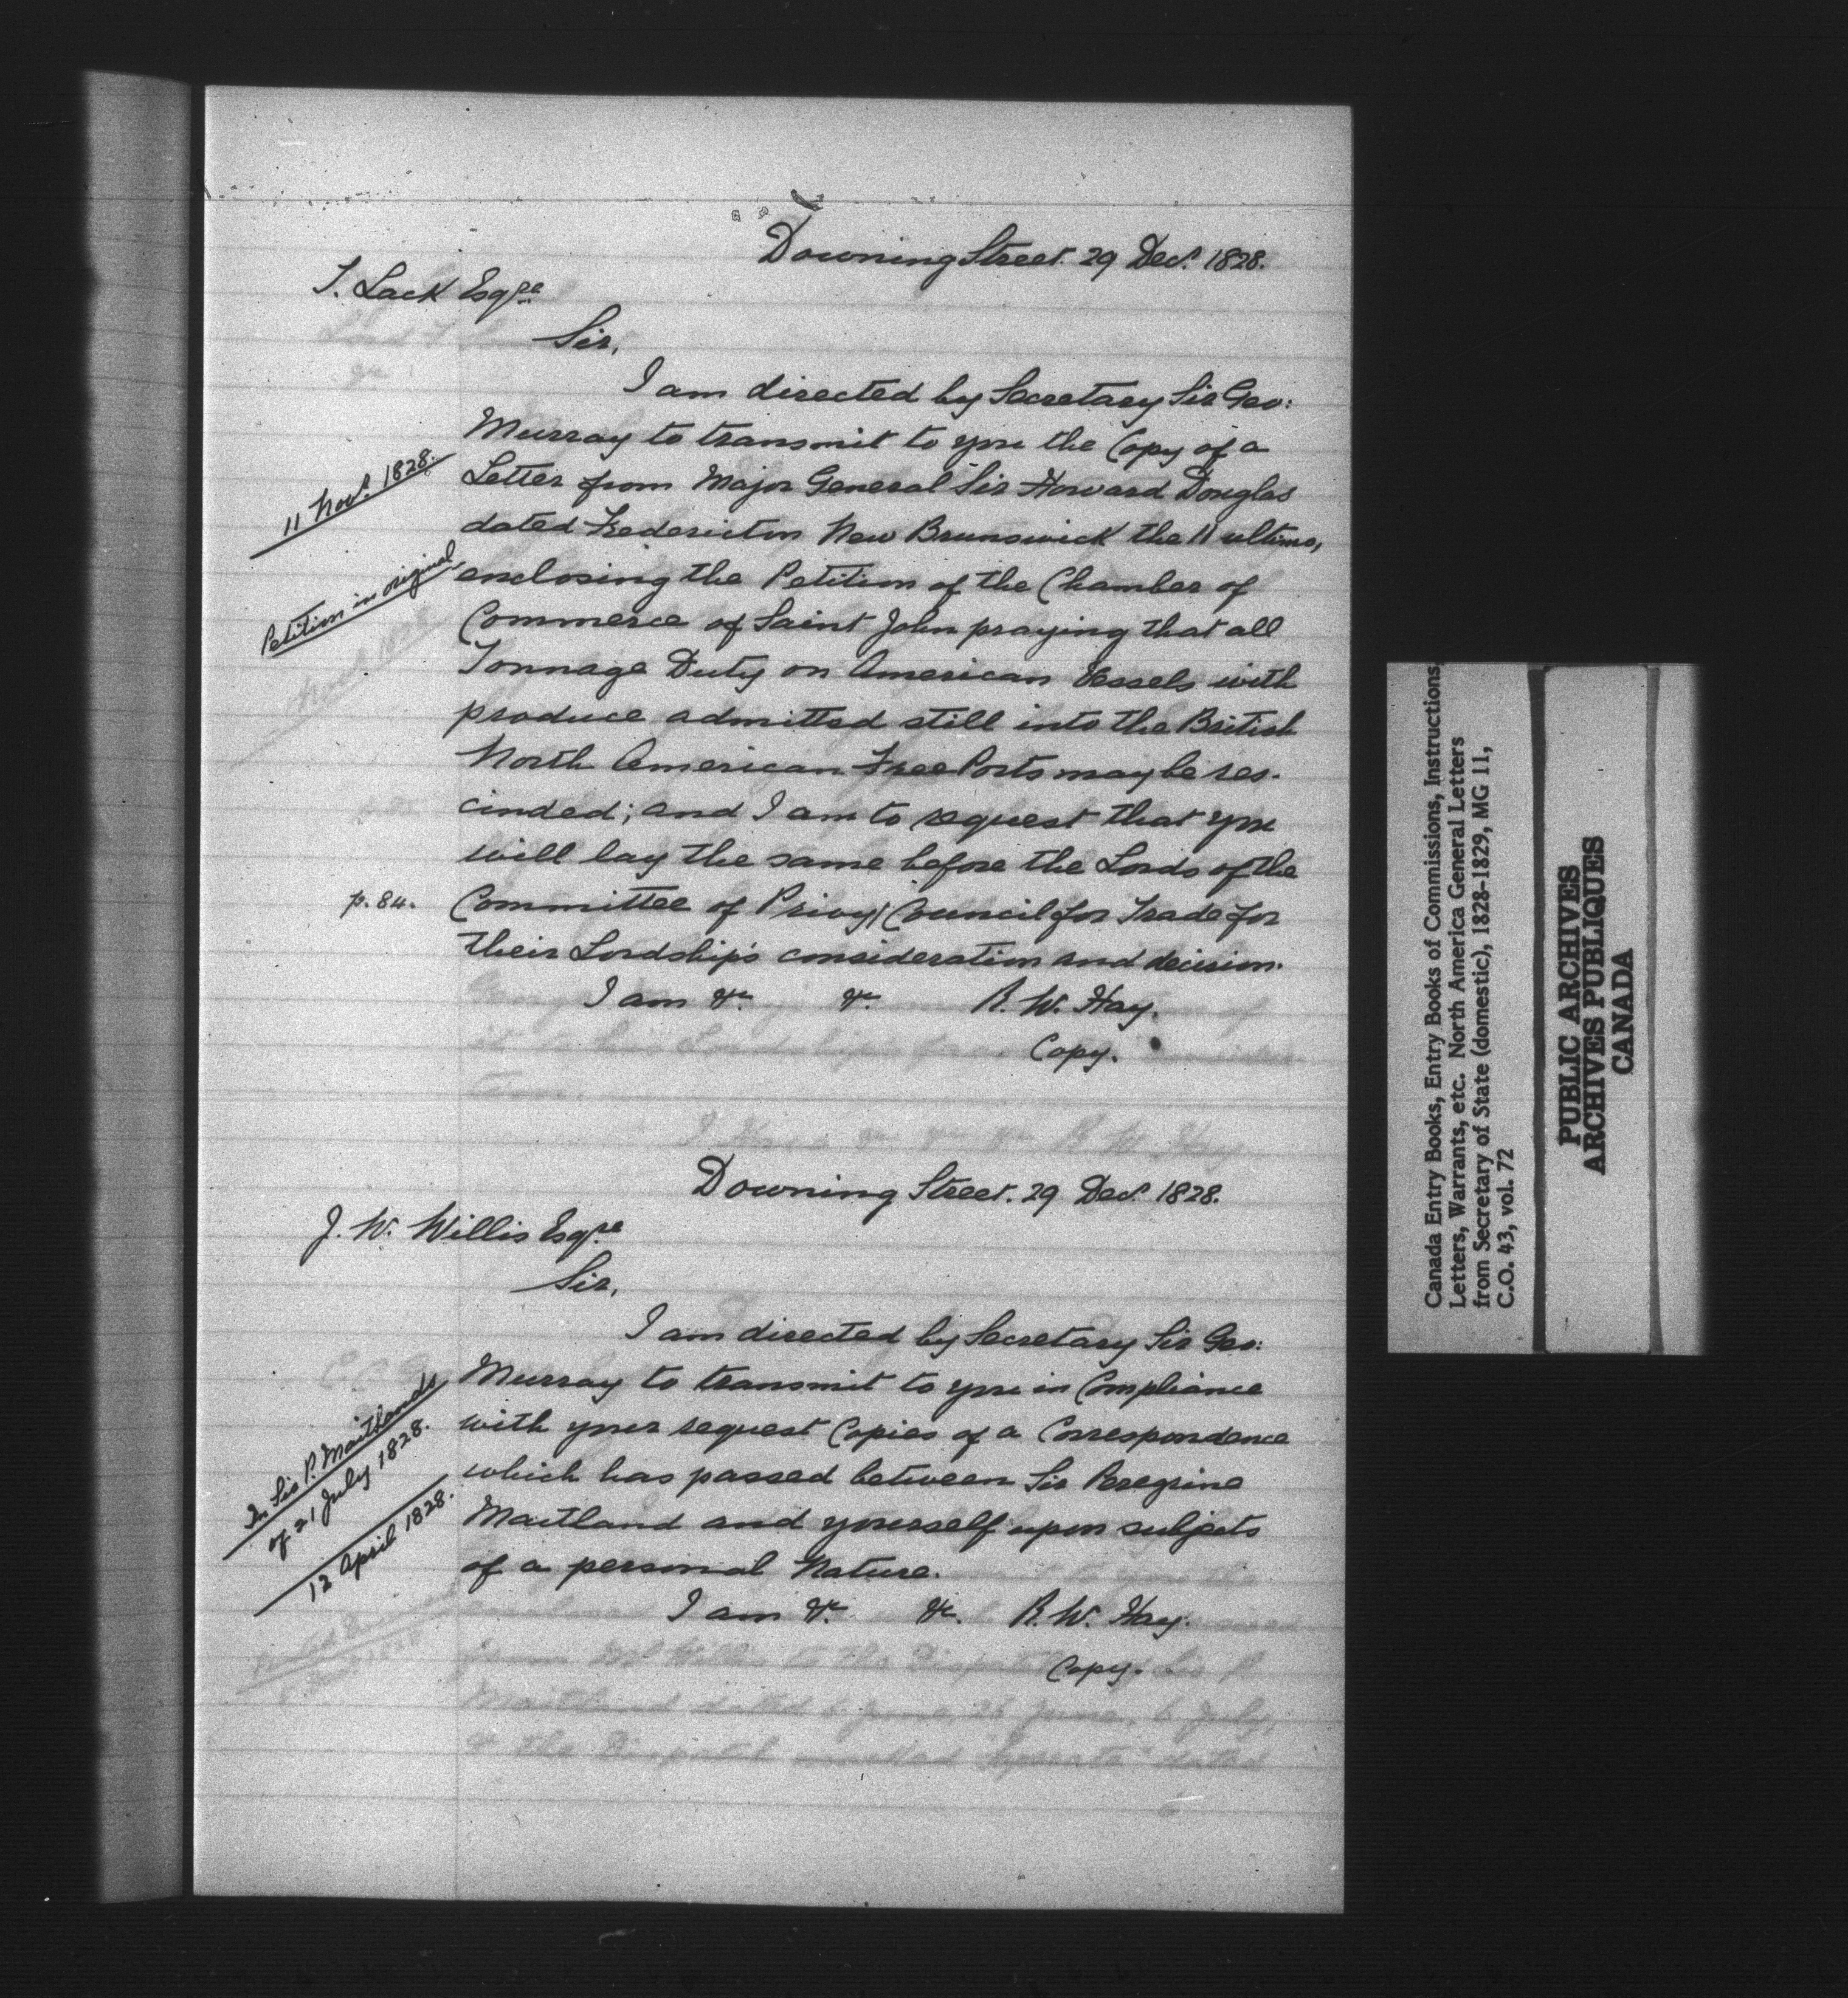 Downing Street. 29 Decr. 1828.
T. Lack Esqre
Sir,
I am directed by Secretary Sir Geo:
Murray to transmit to you the Copy of a
11 Novr. 1828.
Letter from Major General Sir Howard Douglas
dated Fredericton New Brunswick the 11 ultimo,
Petition in original
enclosing the Petition of the Chamber of
Commerce of Saint John praying that all
Tonnage Duty on American Vessels with
produce admitted still into the British
North American Free Ports may be res-
cinded; and I am to request that you
will lay the same before the Lords of the
p. 84.
Committee of Privy Council for Trade for
their Lordships consideration and decision.
I am &c. &c. R. W. Hay.
Copy.
Downing Street. 29 Decr. 1828.
J. W. Willis Esqre
Sir,
I am directed by Secretary Sir Geo:
Murray to transmit to you in Compliance
In Sir P. Maitlands
of 21 July 1828.
with your request Copies of a Correspondence
which has passed between Sir Peregrine
12 April 1828.
Maitland and yourself upon subjects
of a personal Nature.
I am &c. &c. R. W. Hay.
Copy.
Canada Entry Books, Entry Books of Commissions, Instructions,
Letters, Warrants, etc. North America General Letters
from Secretary of State (domestic), 1828-1829, MG 11,
C.O. 43, vol. 72
PUBLIC ARCHIVES
ARCHIVES PUBLIQUES
CANADA